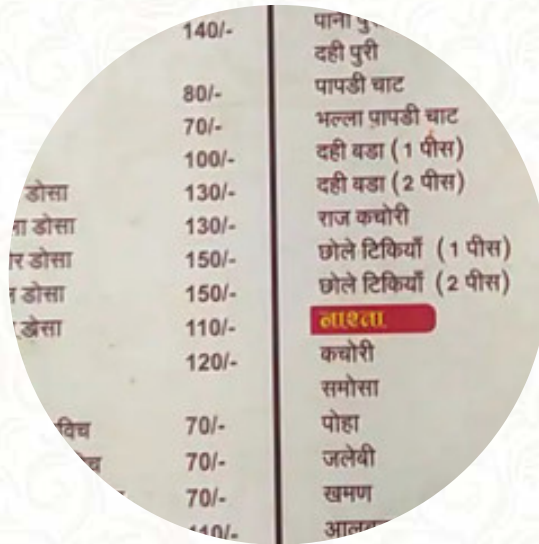 140/-
80/-
70/-
100/-
डोसा 130/-
डोसा 130/-
डोसा 150/-
डोसा 150/-
110/-
120/-
70/-
70/-
70/-
110/-
पानी
दही पुरी
पापडी चाट
भल्ला पापडी चाट
दही वडा (1 पीस)
दही वडा (2 पीस)
राज कचोरी
छोले टिकियाँ (1 पीस)
छोले टिकियाँ (2 पीस)
नाश्ता
कचोरी
समोसा
पोहा
जलेबी
खमण